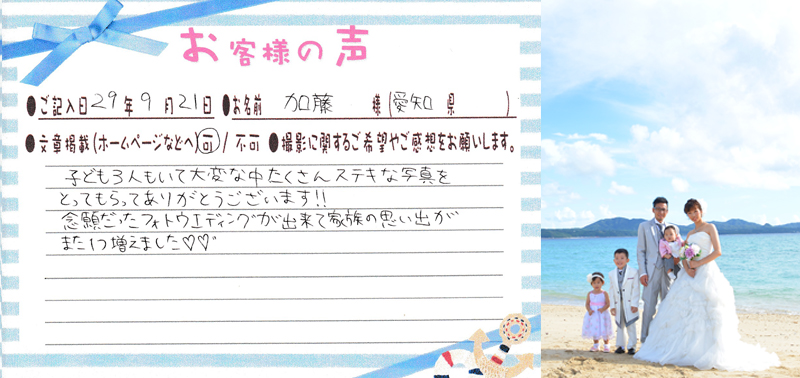 お客様の声
●ご記入日 29年 9月 21日 ●お名前 加藤 様 (愛知 県 )
●文章掲載(ホームページなどへ) 可 / 不可 ●撮影に関するご希望やご感想をお願いします。
子ども3人もいて大変な中たくさんステキな写真を
とってもらってありがとうございます!!
念願だったフォトウエディングが出来て家族の思い出が
また1つ増えました♡♡